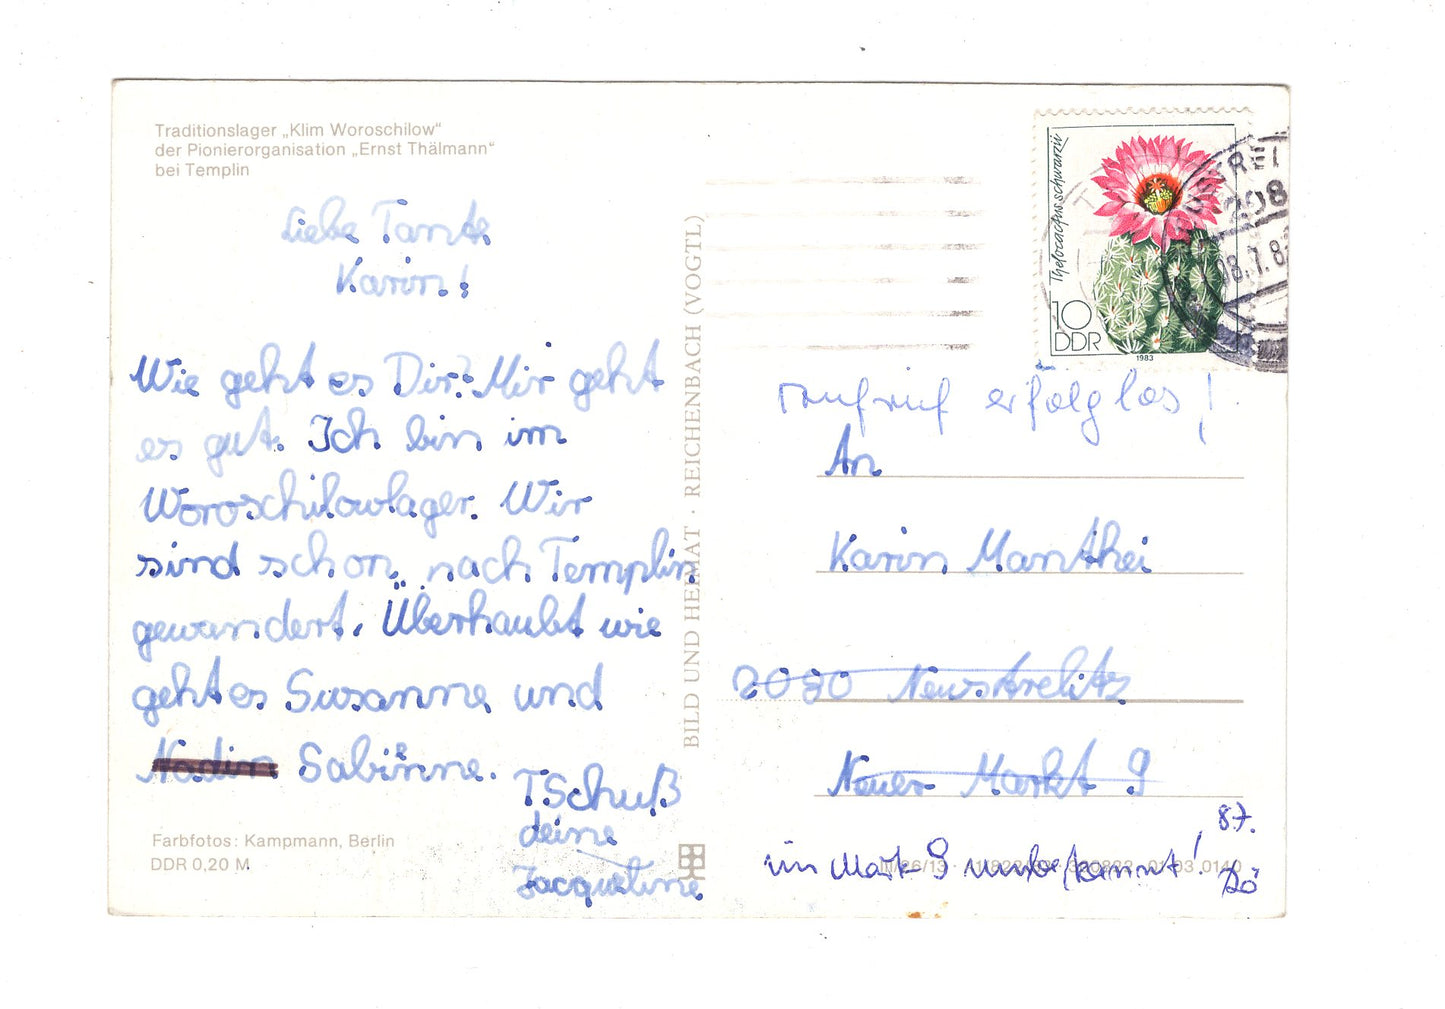 Traditionslager „Klim Woroschilow“
der Pionierorganisation „Ernst Thälmann“
bei Templin
Liebe Tante
Karin!
Wie geht es Dir? Mir geht
es gut. Ich bin im
Woroschilowlager. Wir
sind schon nach Templin
gewandert. Überhaubt wie
geht es Susanne und
Nadin Sabinne.
TSchuß
deine
Jacqueline
Farbfotos: Kampmann, Berlin
DDR 0,20 M
BILD UND HEIMAT · REICHENBACH (VOGTL)
Thelocactus schwarzii
10
DDR
1983
208
08.7.8
Aufruf erfolglos!
An
Karin Manthei
2080 Neustrelitz
Neuer Markt 9
im Markt 9 unbekannt!
8.7.